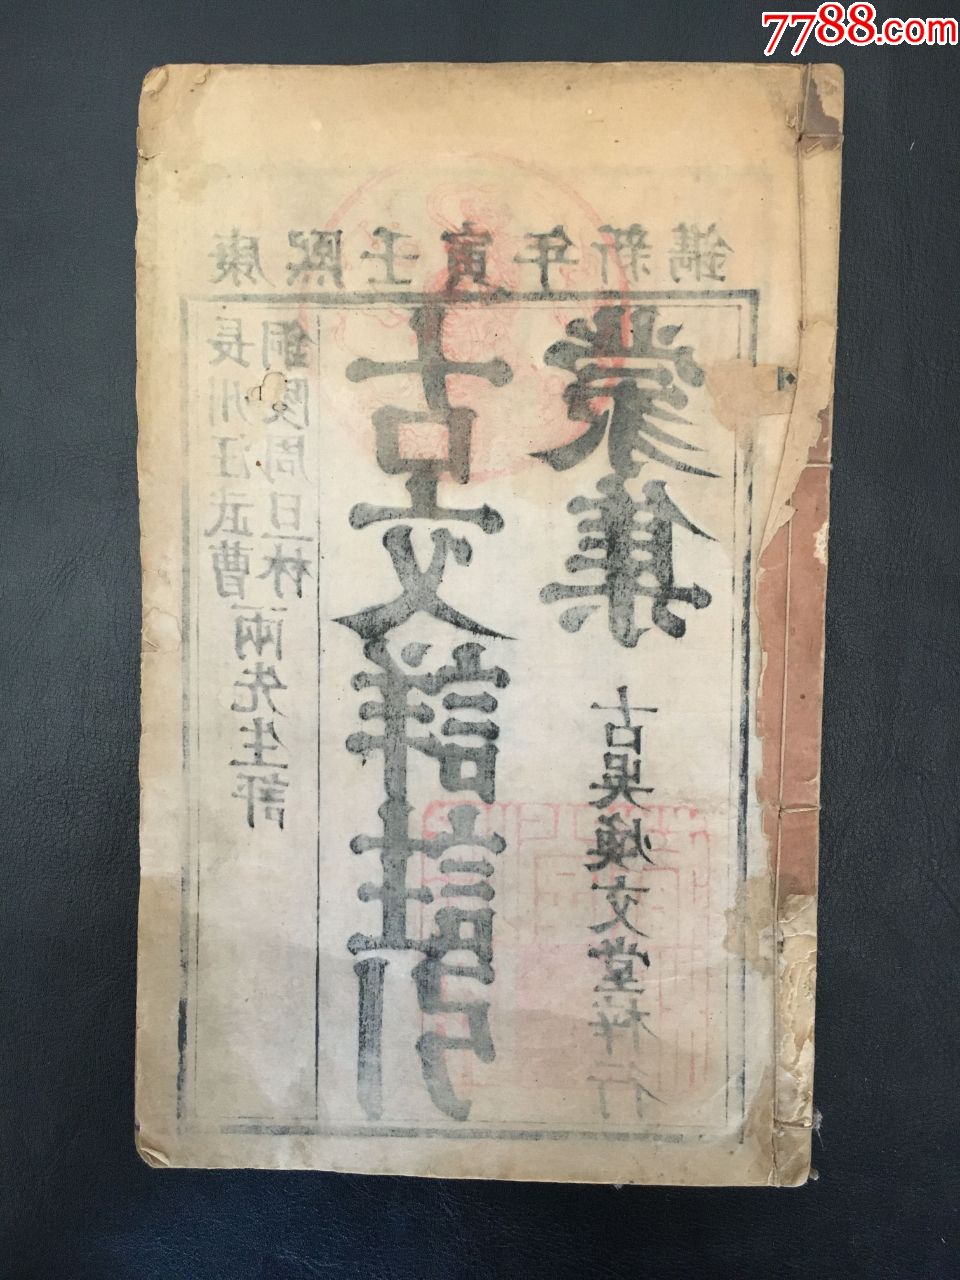 7788.com
康熙壬寅年新鐫
長州汪武曹
銅陵周旦林
兩先生評
古文詳註引
蒙集
古吳煥文堂梓行